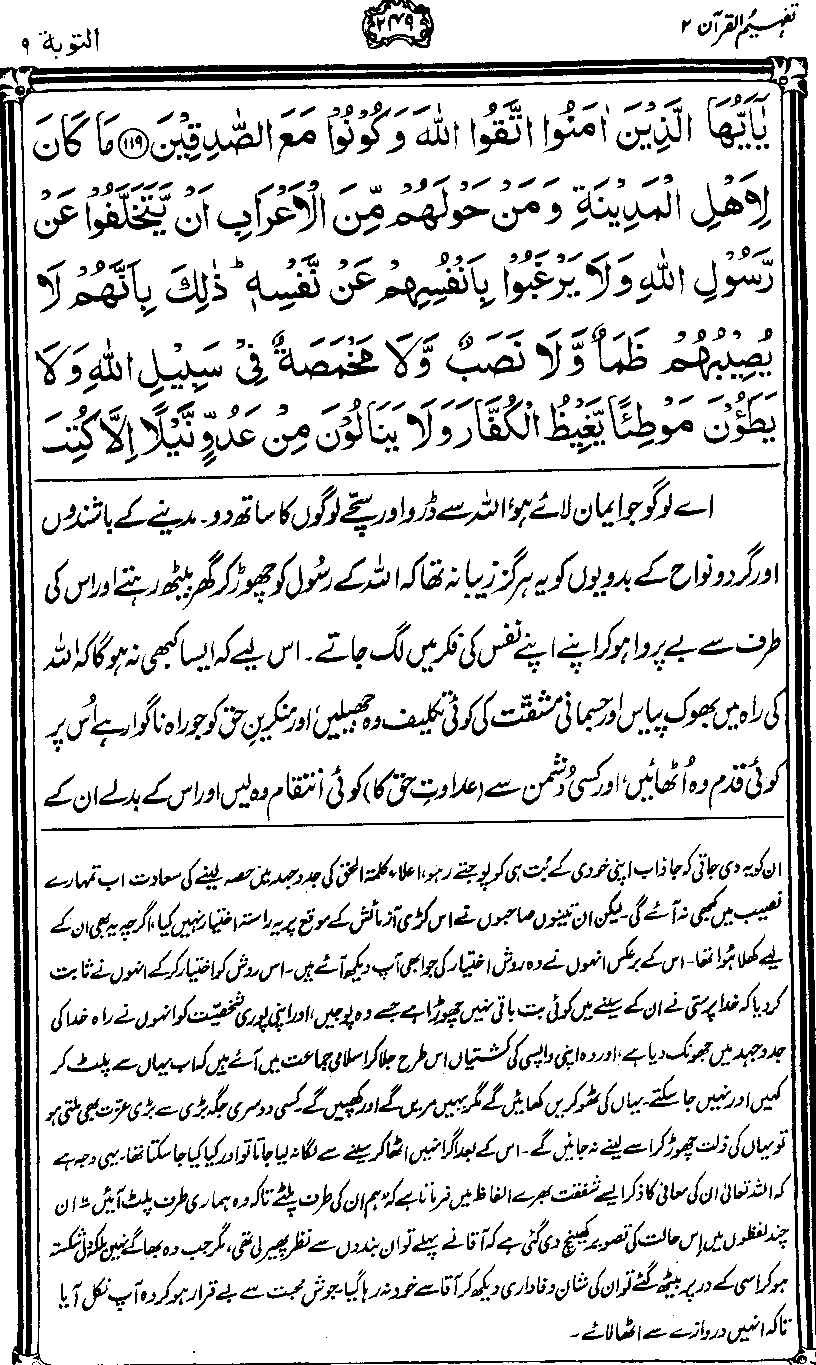 تفہیم القرآن ۲
۲۴۹
التوبة ۹
يٰۤاَيُّهَا الَّذِيْنَ اٰمَنُوا اتَّقُوا اللّٰهَ وَكُوْنُوْا مَعَ الصّٰدِقِيْنَ ﴿۱۱۹﴾ مَا كَانَ
لِاَهْلِ الْمَدِيْنَةِ وَمَنْ حَوْلَهُمْ مِّنَ الْاَعْرَابِ اَنْ يَّتَخَلَّفُوْا عَنْ
رَّسُوْلِ اللّٰهِ وَلَا يَرْغَبُوْا بِاَنْفُسِهِمْ عَنْ نَّفْسِهٖ ؕ ذٰلِكَ بِاَنَّهُمْ لَا
يُصِيْبُهُمْ ظَمَاٌ وَّلَا نَصَبٌ وَّلَا مَخْمَصَةٌ فِيْ سَبِيْلِ اللّٰهِ وَلَا
يَطَـُٔوْنَ مَوْطِئًا يَّغِيْظُ الْكُفَّارَ وَلَا يَنَالُوْنَ مِنْ عَدُوٍّ نَّيْلًا اِلَّا كُتِبَ
اے لوگو جو ایمان لائے ہو، اللہ سے ڈرو اور سچے لوگوں کا ساتھ دو۔ مدینے کے باشندوں
اور گرد و نواح کے بدویوں کو یہ ہرگز زیبا نہ تھا کہ اللہ کے رسُول کو چھوڑ کر گھر بیٹھ رہتے اور اس کی
طرف سے بے پروا ہو کر اپنے اپنے نفس کی فکر میں لگ جاتے۔ اس لیے کہ ایسا کبھی نہ ہوگا کہ اللہ
کی راہ میں بھوک پیاس اور جسمانی مشقّت کی کوئی تکلیف وہ جھیلیں، اور منکرینِ حق کو جو راہ ناگوار ہے اُس پر
کوئی قدم وہ اُٹھائیں، اور کسی دُشمن سے (عداوتِ حق کا) کوئی انتقام وہ لیں اور اس کے بدلے ان کے
ان کو یہ دی جاتی کہ جاؤ اب اپنی خودی کے بُت ہی کو پوجتے رہو، اعلاء کلمۃ الحق کی جدوجہد میں حصہ لینے کی سعادت اب تمہارے
نصیب میں کبھی نہ آئے گی۔ لیکن ان تینوں صاحبوں نے اس کڑی آزمائش کے موقع پر یہ راستہ اختیار نہیں کیا، اگرچہ یہ بھی ان کے
لیے کھلا ہُوا تھا۔ اس کے برعکس انہوں نے وہ روش اختیار کی جو ابھی آپ دیکھ آئے ہیں۔ اس روش کو اختیار کر کے انہوں نے ثابت
کر دیا کہ خدا پرستی نے ان کے سینے میں کوئی بت باقی نہیں چھوڑا ہے جسے وہ پوجیں، اور اپنی پوری شخصیت کو انہوں نے راہ خدا کی
جدوجہد میں جھونک دیا ہے، اور وہ اپنی واپسی کی کشتیاں اس طرح جلا کر اسلامی جماعت میں آئے ہیں کہ اب یہاں سے پلٹ کر
کہیں اور نہیں جا سکتے۔ یہاں کی ٹھوکریں کھائیں گے مگر یہیں مریں گے اور کھپیں گے۔ کسی دوسری جگہ بڑی سے بڑی عزت بھی ملتی ہو
تو یہاں کی ذلت چھوڑ کر اسے لینے نہ جائیں گے۔ اس کے بعد اگر انہیں اٹھا کر سینے سے لگا نہ لیا جاتا تو اور کیا کیا جا سکتا تھا۔ یہی وجہ ہے
کہ اللہ تعالیٰ ان کی معافی کا ذکر ایسے شفقت بھرے الفاظ میں فرماتا ہے کہ ”ہم ان کی طرف پلٹے تاکہ وہ ہماری طرف پلٹ آئیں“۔ ان
چند لفظوں میں اِس حالت کی تصویر کھینچ دی گئی ہے کہ آقا نے پہلے تو ان بندوں سے نظر پھیر لی تھی، مگر جب وہ بھاگے نہیں بلکہ دل شکستہ
ہو کر اسی کے در پر بیٹھ گئے تو ان کی شان وفاداری دیکھ کر آقا سے خود نہ رہا گیا۔ جوش محبت سے بے قرار ہو کر وہ آپ نکل آیا
تاکہ انہیں دروازے سے اٹھا لائے۔